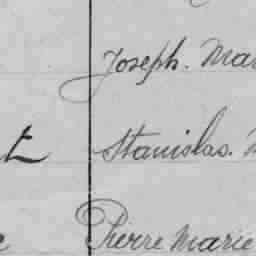 Joseph. Mar
Stanislas. M
Pierre Marie